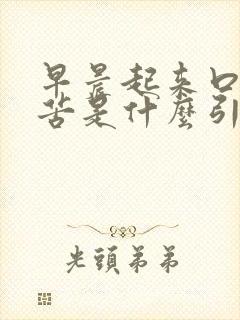 早晨起来口
苦是什麼引
光頭弟弟